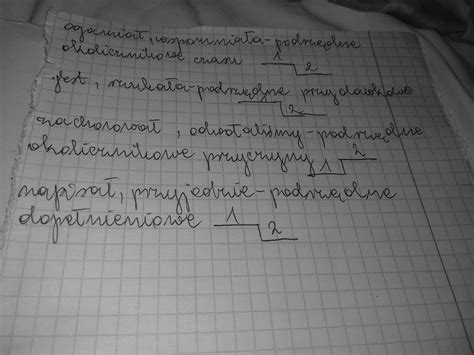 ogarniał, wspominała - podrzędne
okolicznikowe czasu 1 2
jest, szukała - podrzędne przydawkowe
1 2
zachorował, odwołaliśmy - podrzędne
okolicznikowe przyczyny 1 2
napisał, przyjedzie - podrzędne
dopełnieniowe 1 2